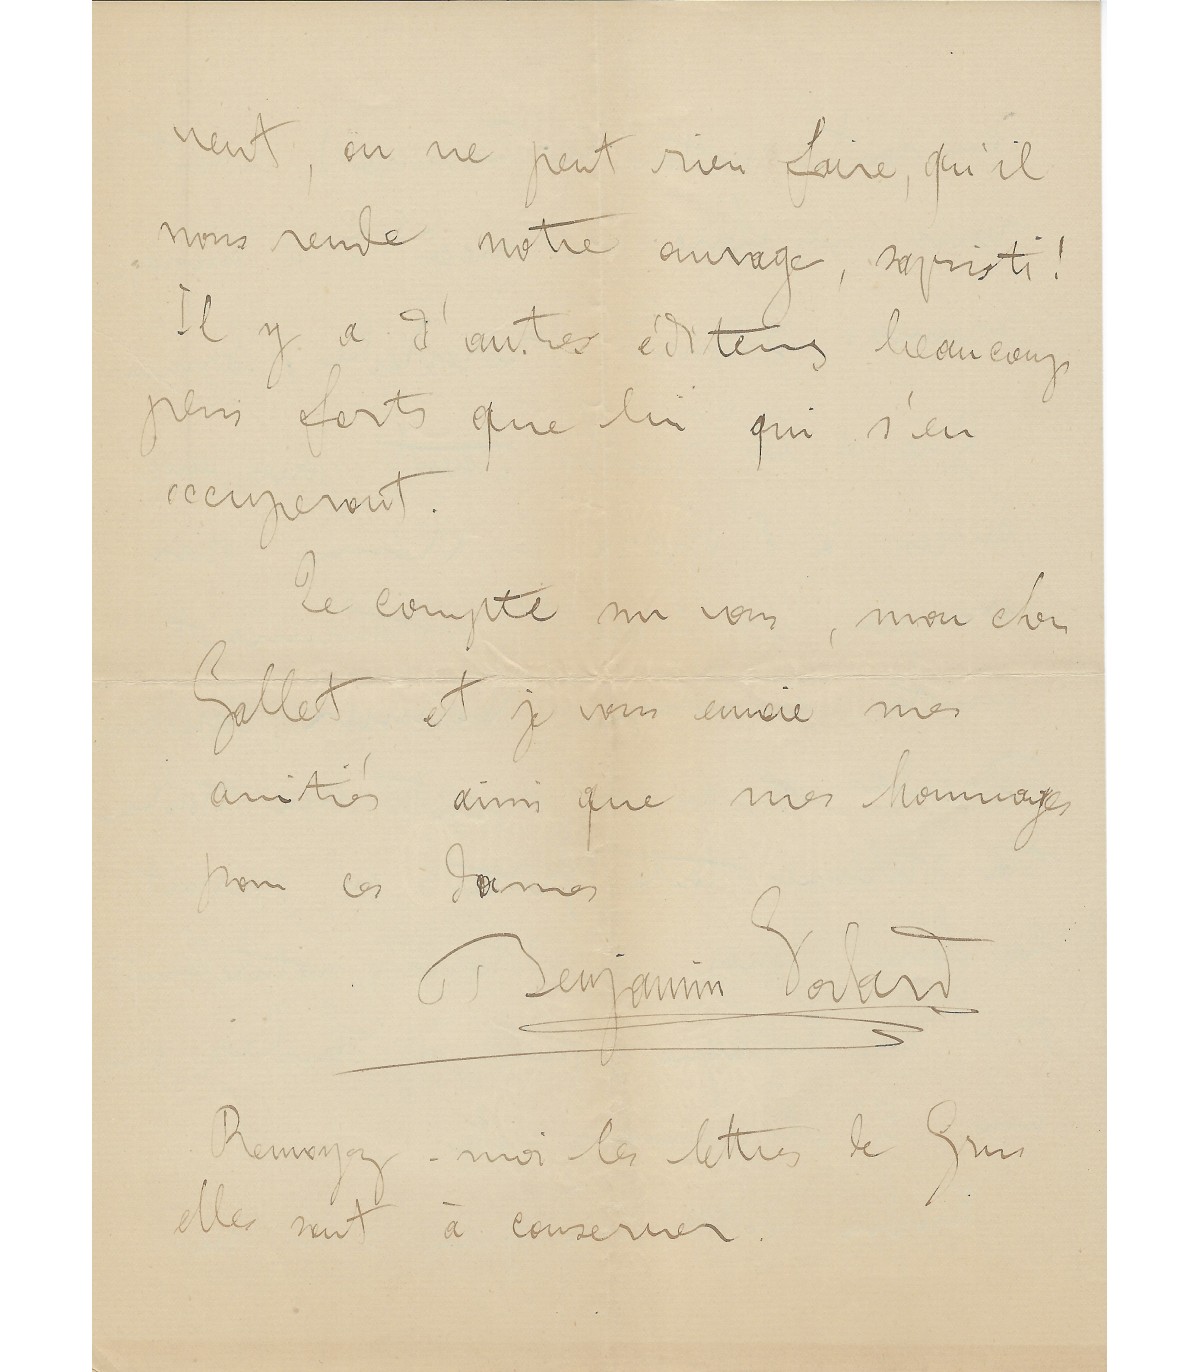 veut, ou ne peut rien faire, qu'il
nous rende notre ouvrage, sapristi!
Il y a d'autres éditeurs beaucoup
plus forts que lui qui s'en
occuperont.
Je compte sur vous, mon cher
Gallet et je vous envoie mes
amitiés ainsi que mes hommages
pour ces dames
Benjamin Godard
Renvoyez-moi les lettres de Grus
elles sont à conserver.